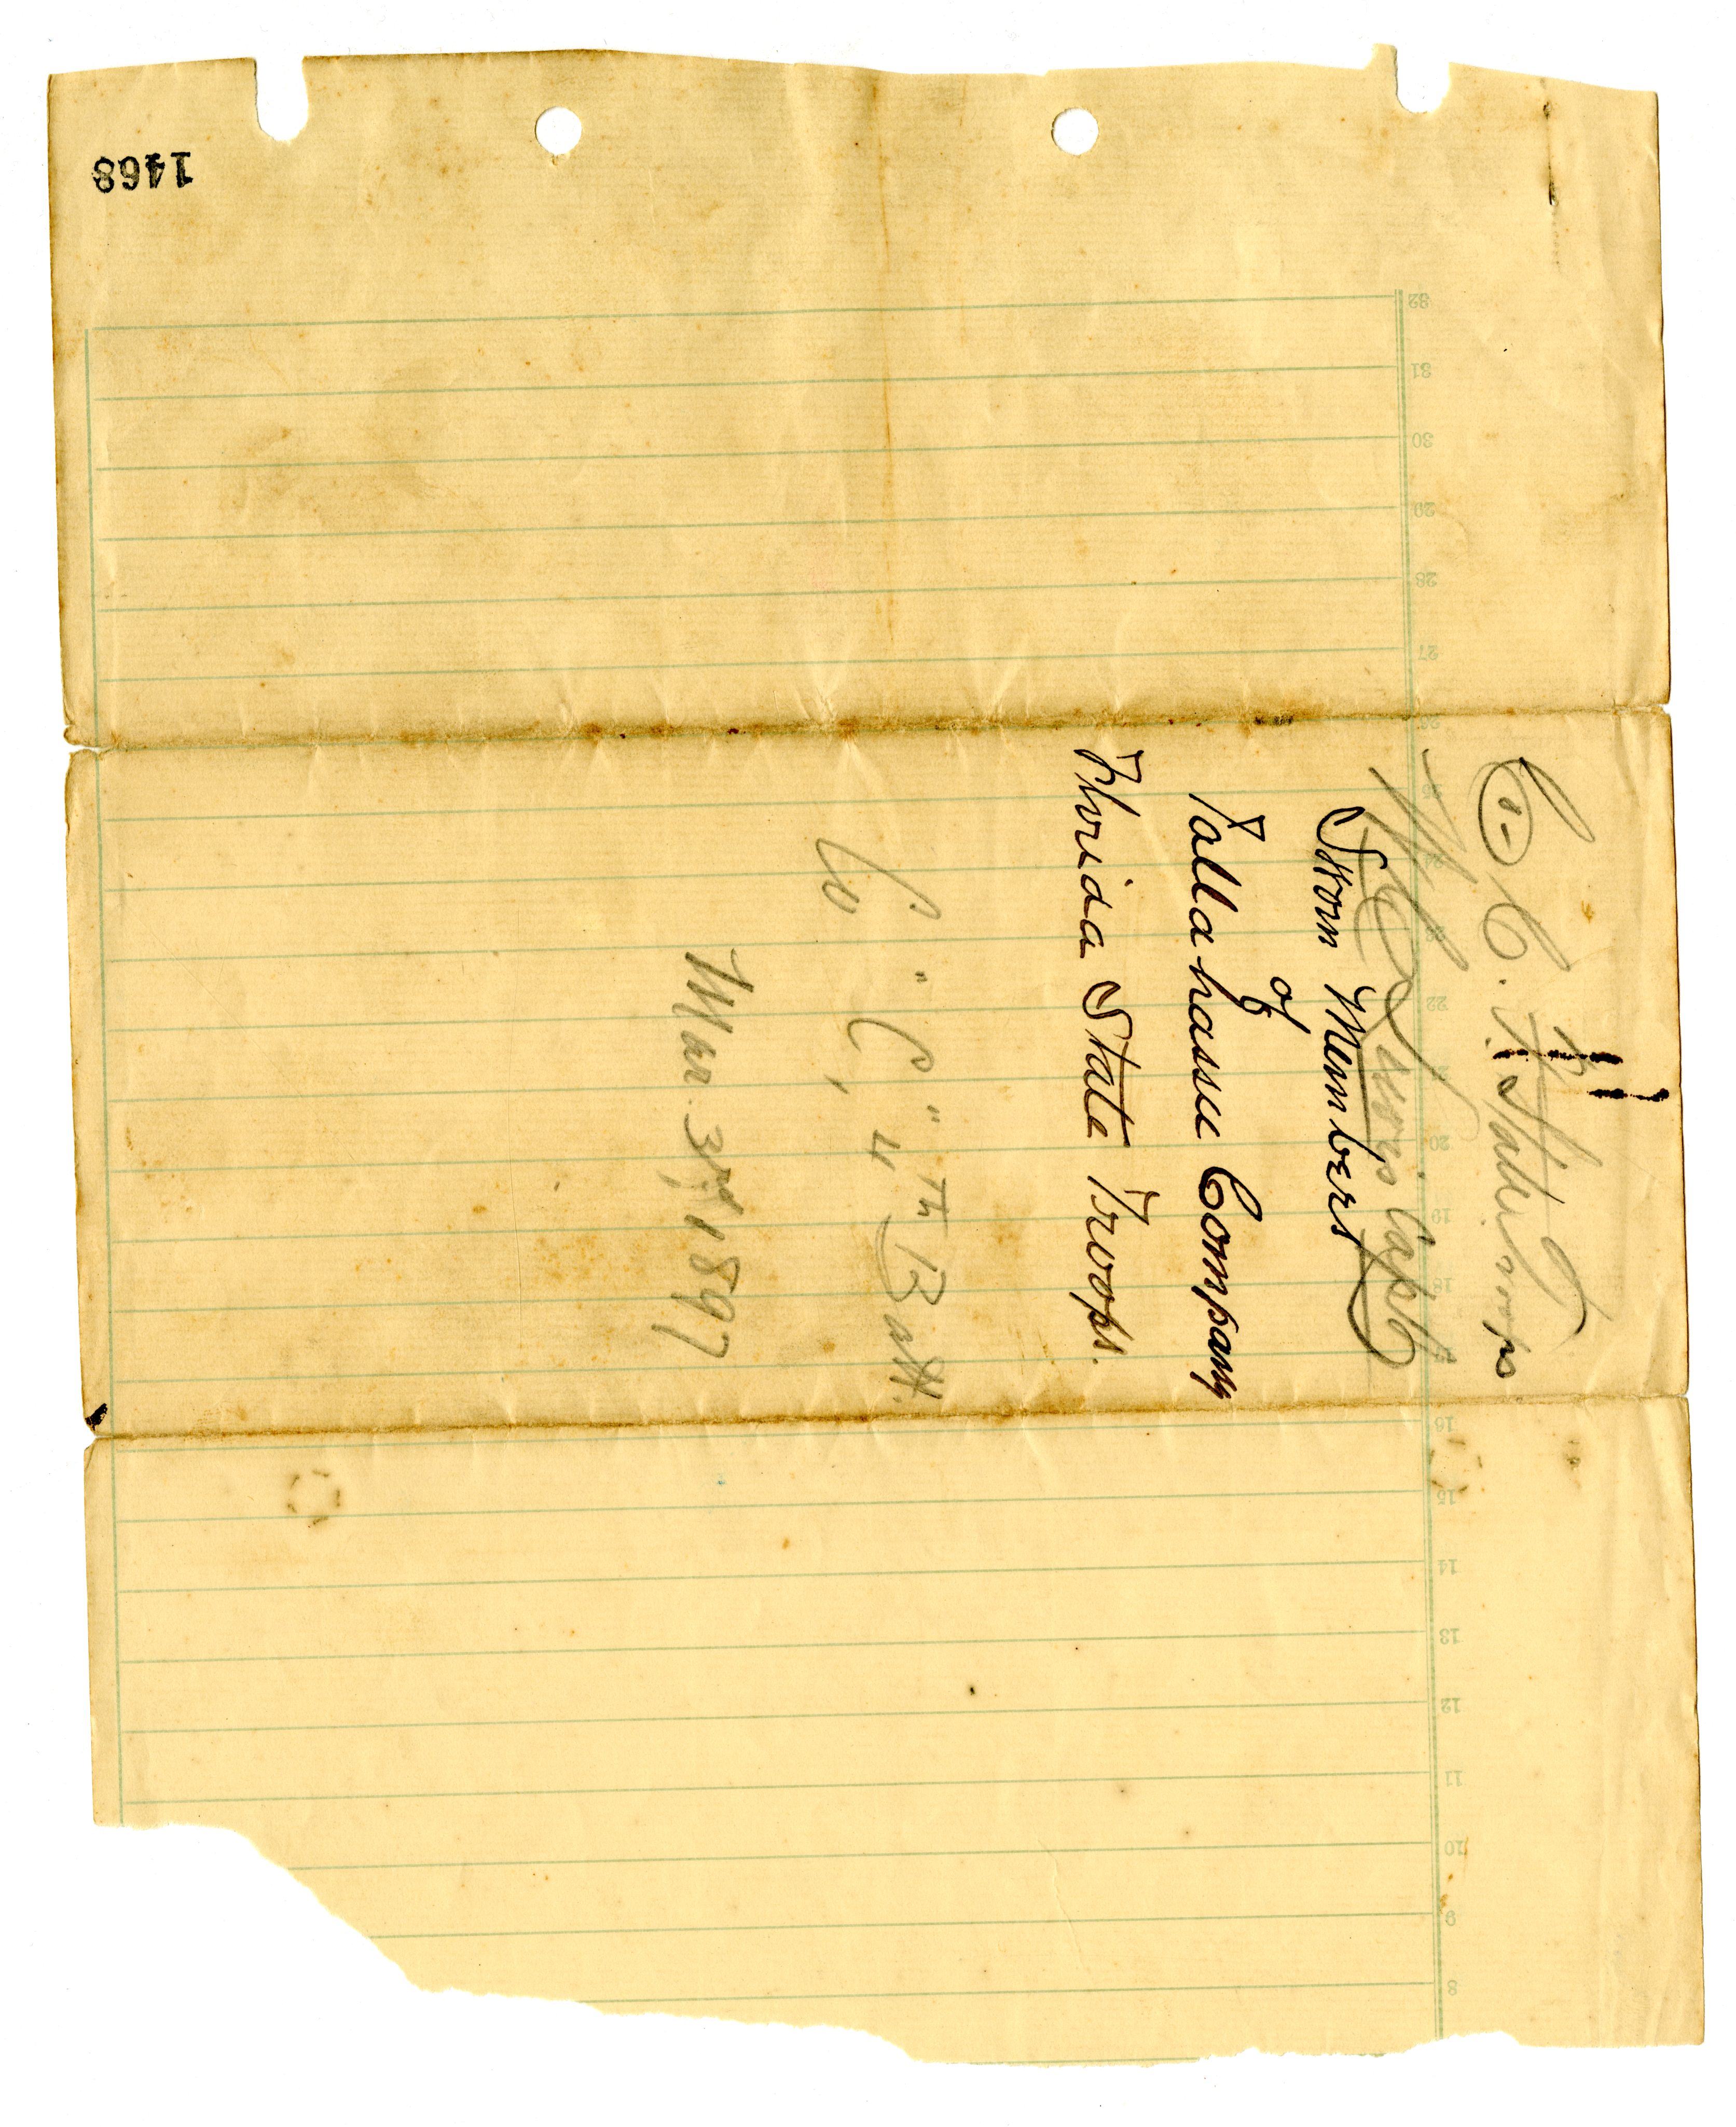 C. F. State Troops
Lewis Capt
Sworn Members
of
Tallahassee Company
Florida State Troops.
Co "C", 4th Batt.
Mar. 3rd, 1897
1468
32
31
30
29
28
27
26
25
24
23
22
21
20
19
18
17
16
15
14
13
12
11
10
9
8